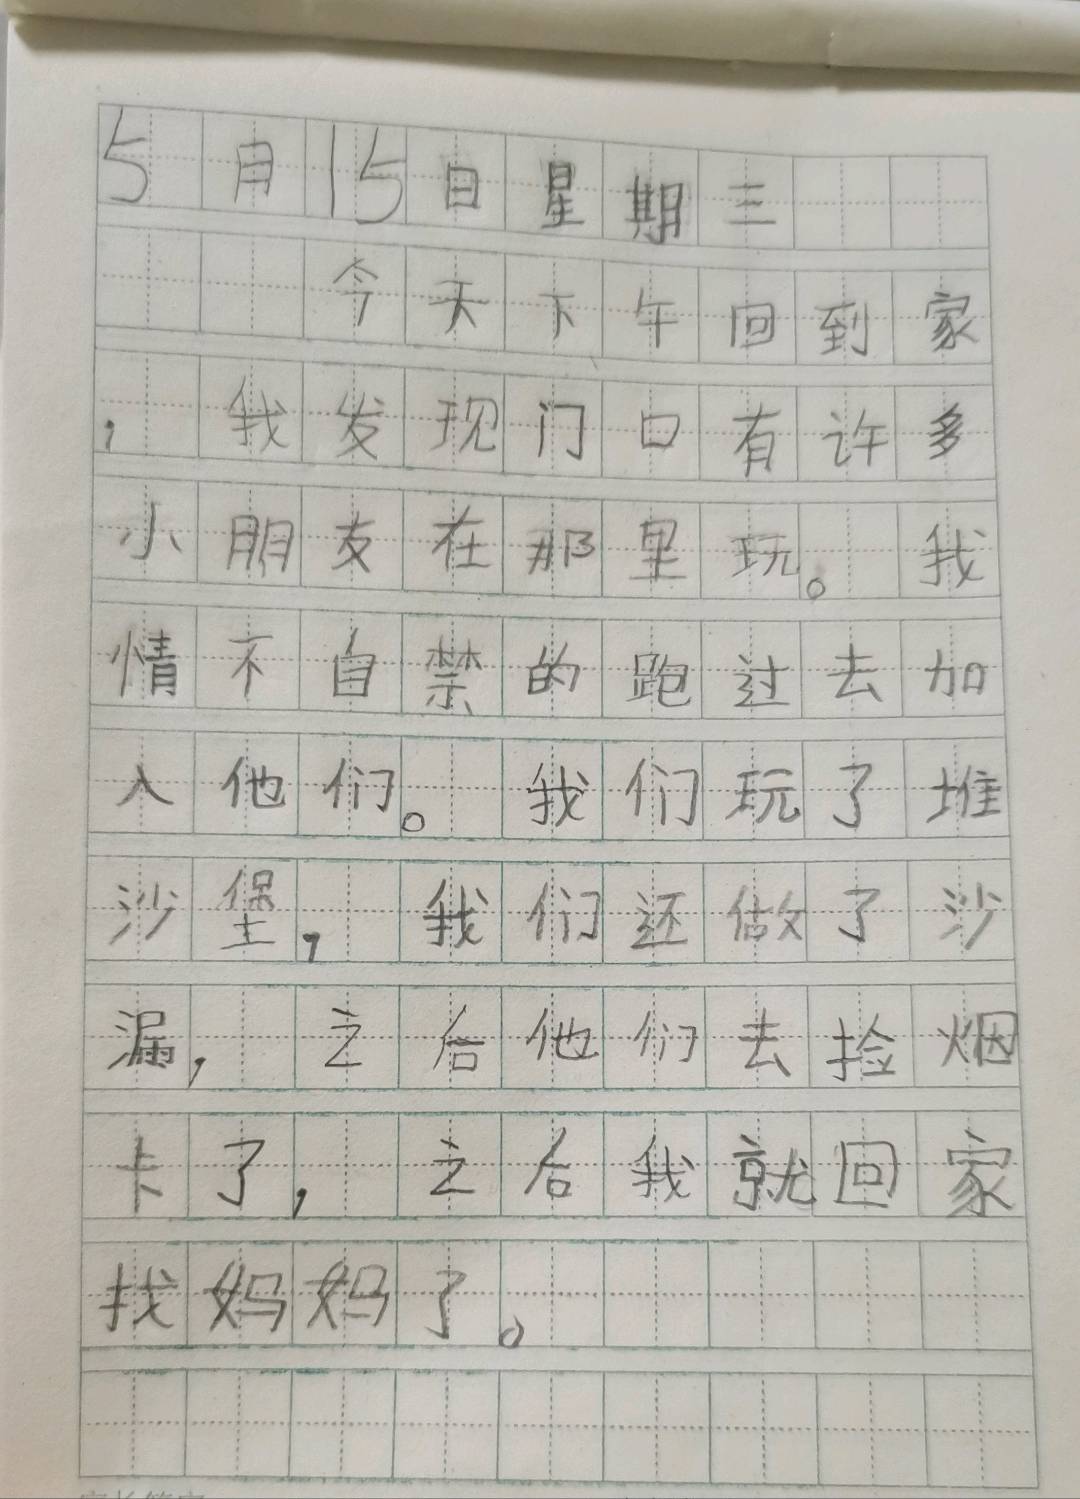 5月15日星期三
今天下午回到家
，我发现门口有许多
小朋友在那里玩。我
情不自禁的跑过去加
入他们。我们玩了堆
沙堡，我们还做了沙
漏，之后他们去捡烟
卡了，之后我就回家
找妈妈了。